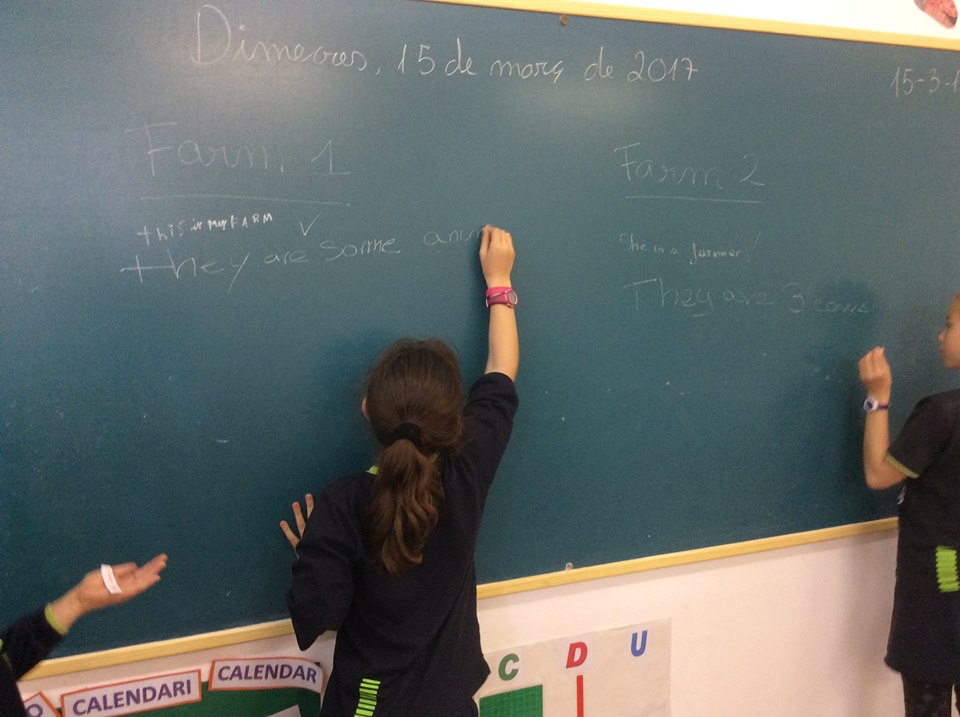 Dimecres, 15 de març de 2017
15-3-1
Farm 1
this is my FARM
they are some anim
Farm 2
She is a farmer!
They are 3 cows
CALENDARI
CALENDAR
C D U